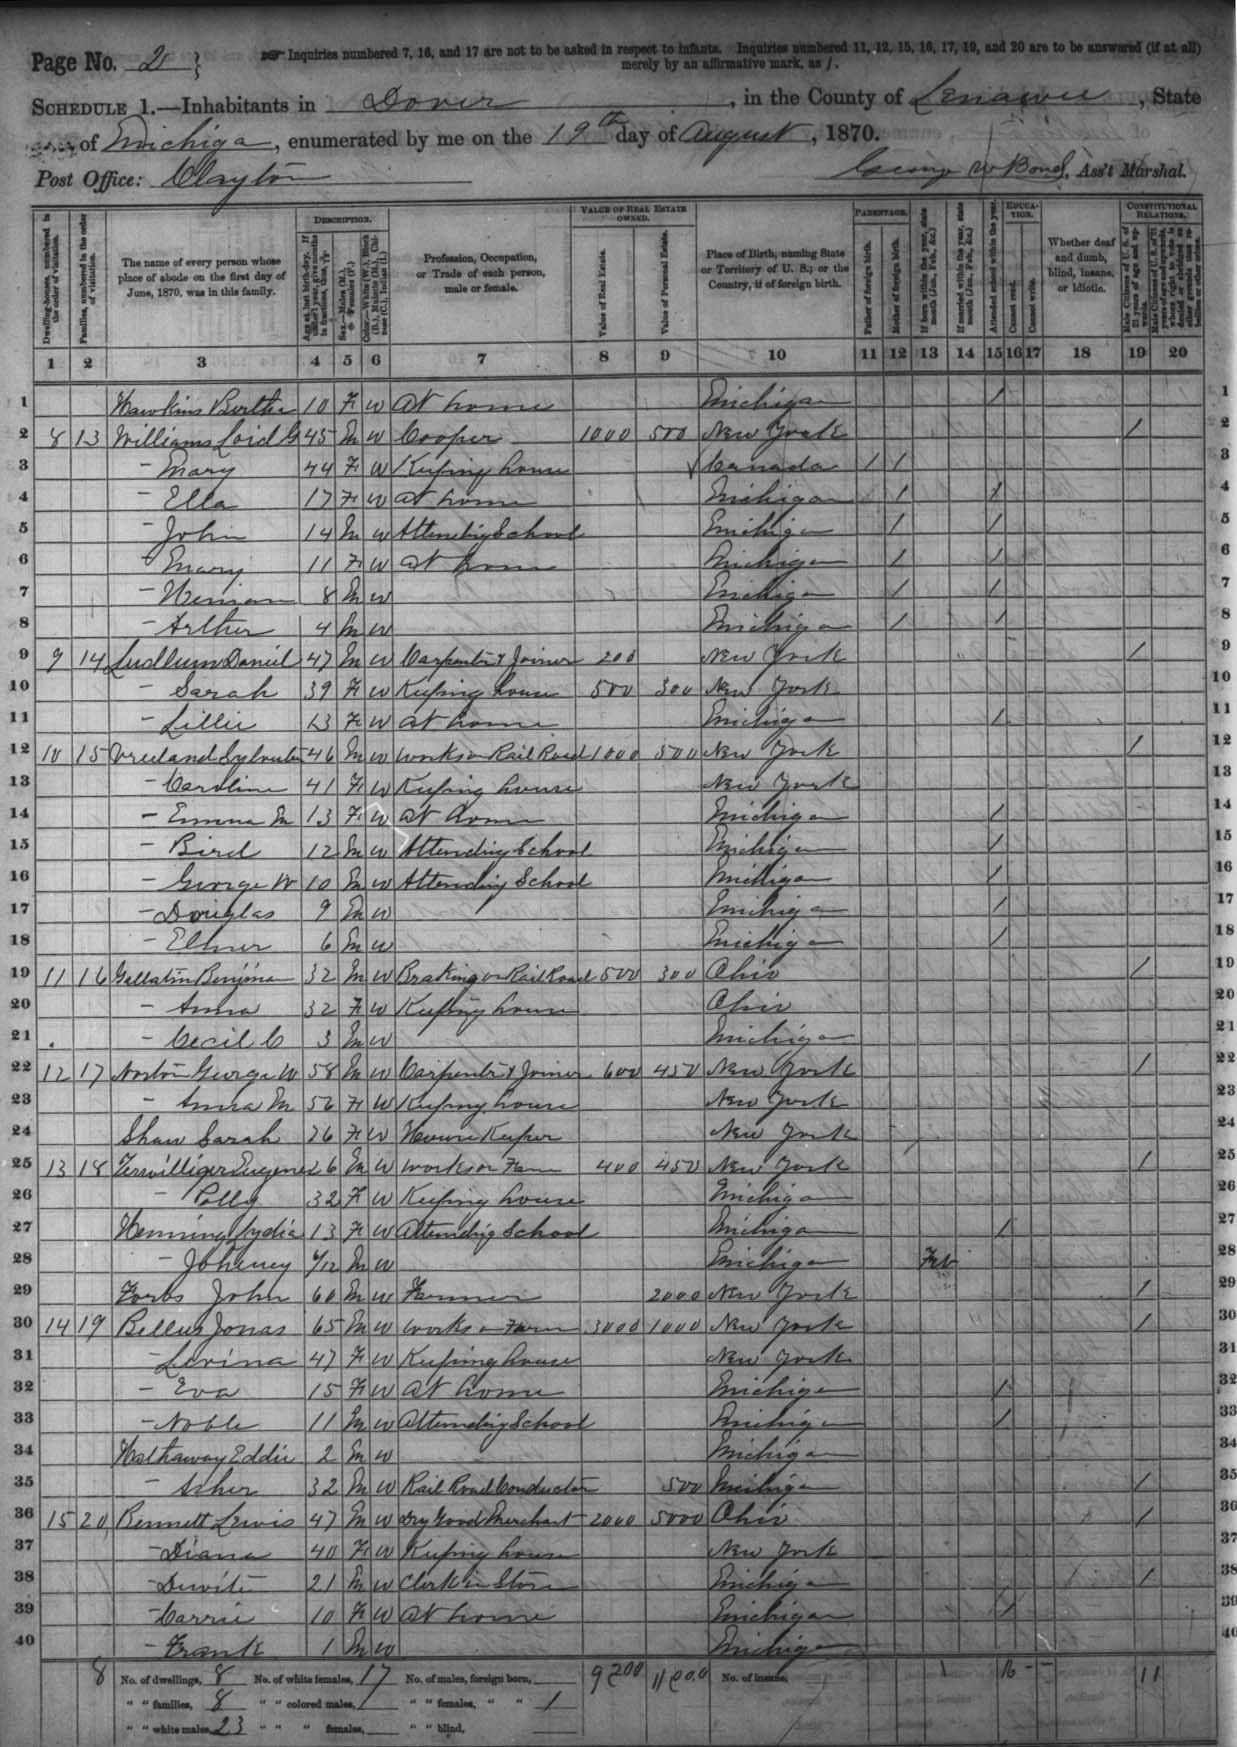 Page No. 2 } Inquiries numbered 7, 16, and 17 are not to be asked in respect to infants. Inquiries numbered 11, 12, 15, 16, 17, 19, and 20 are to be answered (if at all)
merely by an affirmative mark, as /.
SCHEDULE 1.—Inhabitants in Dover, in the County of Lenawee, State
of Michiga, enumerated by me on the 19th day of August, 1870.
Post Office: Clayton
George W Bond, Ass't Marshal.
DESCRIPTION. VALUE OF REAL ESTATE OWNED. PARENTAGE. EDUCATION. CONSTITUTIONAL RELATIONS.
Dwelling-houses, numbered in the order of visitation.
Families, numbered in the order of visitation.
The name of every person whose place of abode on the first day of June, 1870, was in this family.
Age at last birth-day. If under 1 year, give months in fractions, thus, 3/12
Sex.—Males (M.), Females (F.)
Color.—White (W.), Black (B.), Mulatto (M.), Chinese (C.), Indian (I.)
Profession, Occupation, or Trade of each person, male or female.
Value of Real Estate.
Value of Personal Estate.
Place of Birth, naming State or Territory of U. S.; or the Country, if of foreign birth.
Father of foreign birth.
Mother of foreign birth.
If born within the year, state month (Jan., Feb., &c.)
If married within the year, state month (Jan., Feb., &c.)
Attended school within the year.
Cannot read.
Cannot write.
Whether deaf and dumb, blind, insane, or idiotic.
Male Citizens of U. S. of 21 years of age and upwards.
1 2 3 4 5 6 7 8 9 10 11 12 13 14 15 16 17 18 19 20
1 Hawkins Berther 10 F W At home Michigan / 1
2 8 13 Williams Loid G 45 M W Cooper 1000 500 New York / 2
3 – Mary 44 F W Keeping house √ Canada / / 3
4 – Ella 17 F W At home Michigan / / 4
5 – John 14 M W Attending School Michiga / / 5
6 – Mary 11 F W At home Michigan / / 6
7 – Heiman 8 M W Michiga / / 7
8 – Arther 4 M W Michiga / / 8
9 9 14 Ludlum Daniel 47 M W Carpenter & Joiner 200 New York / 9
10 – Sarah 39 F W Keeping house 500 300 New York 10
11 – Lillie 13 F W At home Michiga / 11
12 10 15 Vreeland Sylvester 46 M W Works on Rail Road 1000 500 New York / 12
13 – Caroline 41 F W Keeping house New York 13
14 – Emma M 13 F W At home Michiga / 14
15 – Bird 12 M W Attending School Michiga / 15
16 – George W 10 M W Attending School Michiga / 16
17 – Douglas 9 M W Michiga / 17
18 – Elmer 6 M W Michiga / 18
19 11 16 Gallatin Benjman 32 M W Braking on Rail Road 500 300 Ohio / 19
20 – Anna 32 F W Keeping house Ohio 20
21 – Cecil C 3 M W Michiga 21
22 12 17 Norton George W 58 M W Carpenter & Joiner 600 450 New York / 22
23 – Anna M 56 F W Keeping house New York 23
24 Shaw Sarah 26 F W House Keeper New York 24
25 13 18 Terwilliger Eugene 26 M W Works on Farm 400 450 New York / 25
26 – Polly 32 F W Keeping house Michiga 26
27 Henning Lydia 13 F W Attending School Michiga / 27
28 – Johnney 4/12 M W Michiga Feb 28
29 Forbs John 60 M W Farmer 2000 New York / 29
30 14 19 Bellus Jonas 65 M W Works on Farm 3000 1000 New York / 30
31 – Lovina 47 F W Keeping house New York 31
32 – Eva 15 F W At home Michiga / 32
33 – Noble 11 M W Attending School Michiga / 33
34 Hathaway Eddie 2 M W Michiga 34
35 – Asher 32 M W Rail Road Conductor 500 Michiga / 35
36 15 20 Bennett Lewis 47 M W Dry Good Merchant 2000 5000 Ohio / 36
37 – Diana 40 F W Keeping house New York 37
38 – Dewite 21 M W Clerk in Store Michiga / 38
39 – Carrie 10 F W At home Michigan / 39
40 – Frank 1 M W Michiga 40
8 No. of dwellings, 8 No. of white females, 17 No. of males, foreign born, 9200 No. of insane, 16 - - 11
" " families, 8 " " colored males, " " females, " " 1
" " white males, 23 " " " females, " " blind,